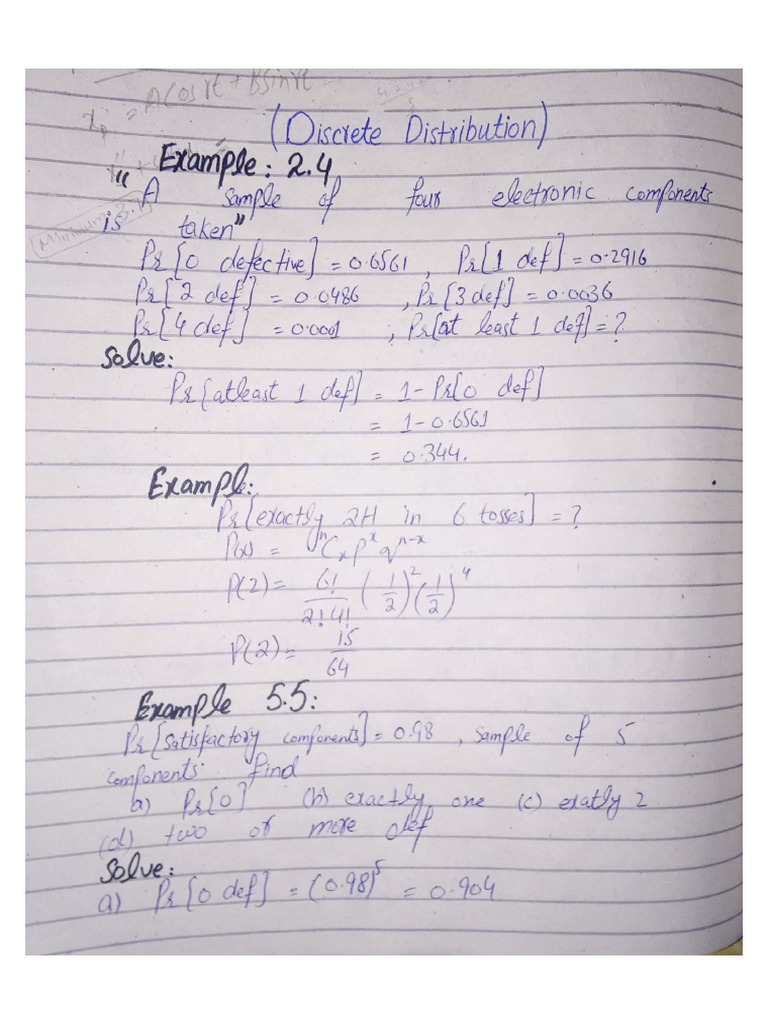 xp = A Cos rt + B Sin rt
(Discrete Distribution)
Example: 2.4
"A sample of four electronic components
is taken"
Pr[0 defective] = 0.6561, Pr[1 def] = 0.2916
Pr[2 def] = 0.0486, Pr[3 def] = 0.0036
Pr[4 def] = 0.0001, Pr[at least 1 def] = ?
Solve:
Pr[atleast 1 def] = 1 - Pr[0 def]
= 1 - 0.6561
= 0.344.
Example:
Pr[exactly 2H in 6 tosses] = ?
P(x) = ⁿCₓ pˣ qⁿ⁻ˣ
P(2) = 6!/2!4! (1/2)² (1/2)⁴
P(2) = 15/64
Example 5.5:
Pr[satisfactory components] = 0.98, sample of 5
components. find
a) Pr[0] (b) exactly one (c) exatly 2
(d) two or more def
Solve:
a) Pr[0 def] = (0.98)⁵ = 0.904